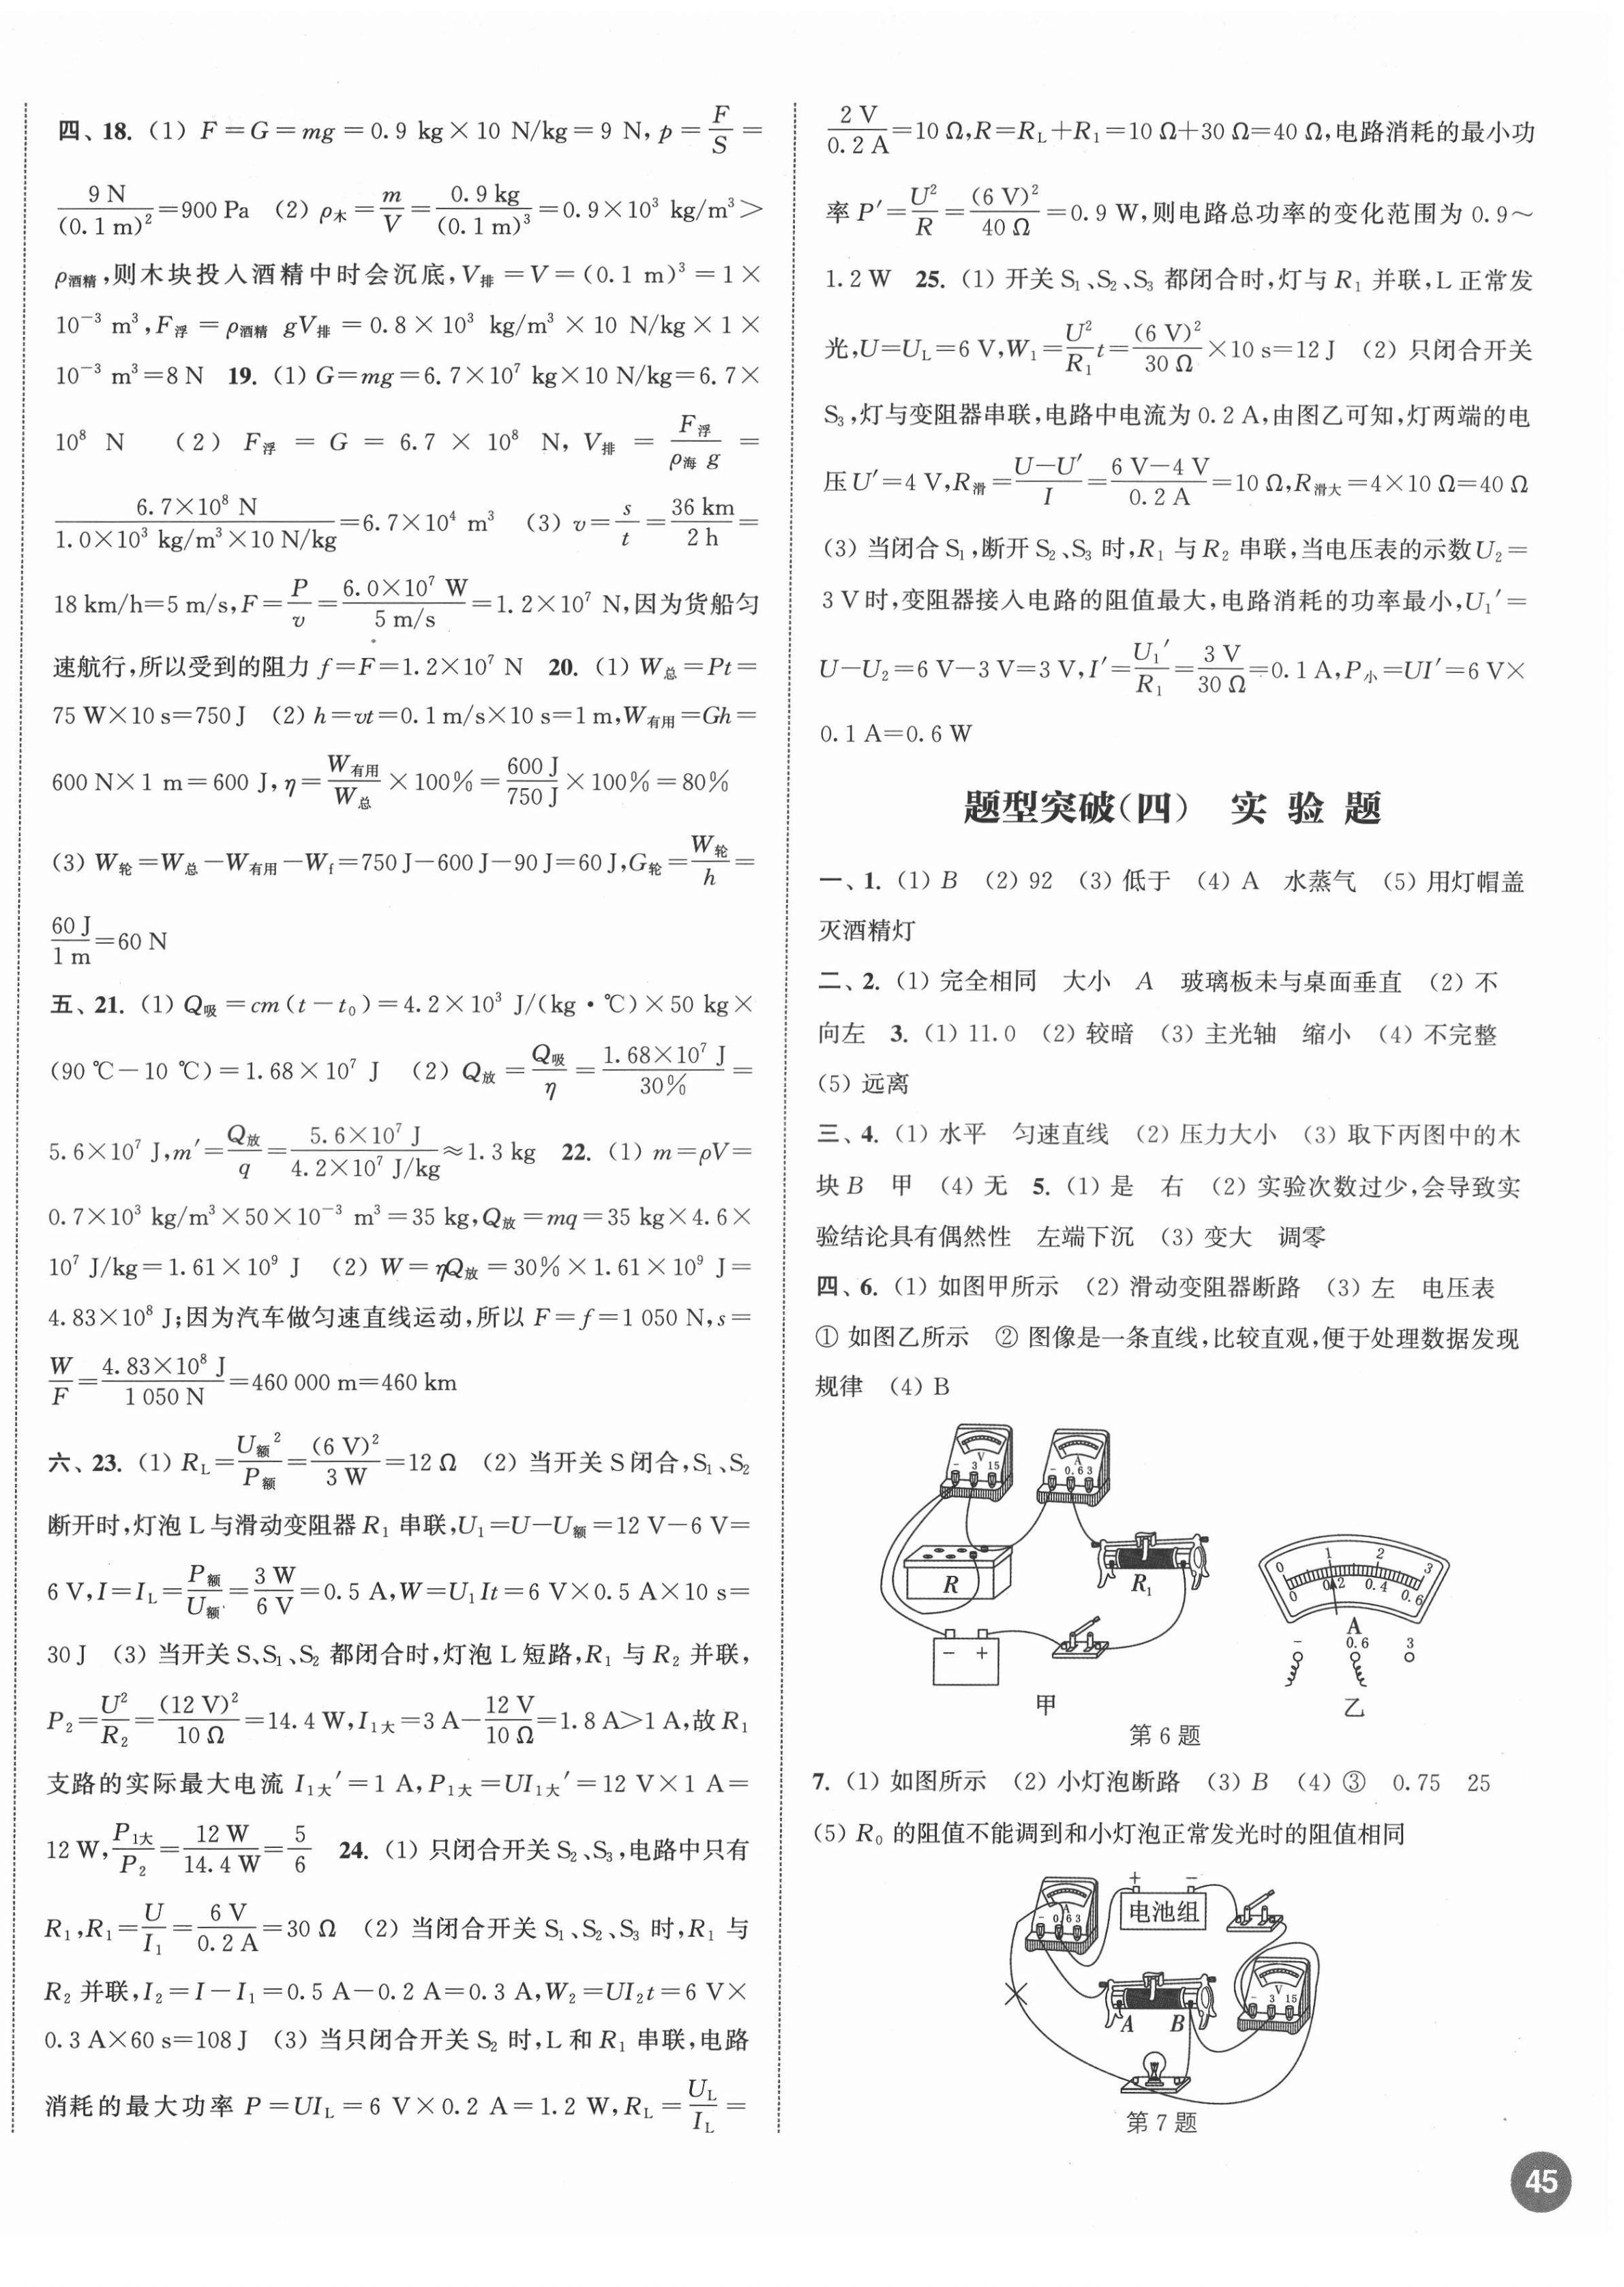 四、18. (1) F=G=mg=0.9 kg×10 N/kg=9 N, p=F/S=
9 N/(0.1 m)²=900 Pa (2) ρ木=m/V=0.9 kg/(0.1 m)³=0.9×10³ kg/m³>
ρ酒精,则木块投入酒精中时会沉底,V排=V=(0.1 m)³=1×
10⁻³ m³,F浮=ρ酒精 gV排=0.8×10³ kg/m³×10 N/kg×1×
10⁻³ m³=8 N 19. (1) G=mg=6.7×10⁷ kg×10 N/kg=6.7×
10⁸ N (2) F浮=G=6.7×10⁸ N, V排=F浮/(ρ海 g)=
6.7×10⁸ N/(1.0×10³ kg/m³×10 N/kg)=6.7×10⁴ m³ (3) v=s/t=36 km/2 h=
18 km/h=5 m/s,F=P/v=6.0×10⁷ W/(5 m/s)=1.2×10⁷ N,因为货船匀
速航行,所以受到的阻力 f=F=1.2×10⁷ N 20. (1) W总=Pt=
75 W×10 s=750 J (2) h=vt=0.1 m/s×10 s=1 m,W有用=Gh=
600 N×1 m=600 J,η=W有用/W总×100%=600 J/750 J×100%=80%
(3) W轮=W总-W有用-Wf=750 J-600 J-90 J=60 J,G轮=W轮/h=
60 J/1 m=60 N
五、21. (1) Q吸=cm(t-t₀)=4.2×10³ J/(kg·℃)×50 kg×
(90 ℃-10 ℃)=1.68×10⁷ J (2) Q放=Q吸/η=1.68×10⁷ J/30%=
5.6×10⁷ J,m′=Q放/q=5.6×10⁷ J/(4.2×10⁷ J/kg)≈1.3 kg 22. (1) m=ρV=
0.7×10³ kg/m³×50×10⁻³ m³=35 kg,Q放=mq=35 kg×4.6×
10⁷ J/kg=1.61×10⁹ J (2) W=ηQ放=30%×1.61×10⁹ J=
4.83×10⁸ J;因为汽车做匀速直线运动,所以 F=f=1 050 N,s=
W/F=4.83×10⁸ J/1 050 N=460 000 m=460 km
六、23. (1) R_L=U额²/P额=(6 V)²/3 W=12 Ω (2) 当开关 S 闭合,S₁、S₂
断开时,灯泡 L 与滑动变阻器 R₁ 串联,U₁=U-U额=12 V-6 V=
6 V,I=I_L=P额/U额=3 W/6 V=0.5 A,W=U₁It=6 V×0.5 A×10 s=
30 J (3) 当开关 S、S₁、S₂ 都闭合时,灯泡 L 短路,R₁ 与 R₂ 并联,
P₂=U²/R₂=(12 V)²/10 Ω=14.4 W,I₁大=3 A-12 V/10 Ω=1.8 A>1 A,故 R₁
支路的实际最大电流 I₁大′=1 A,P₁大=UI₁大′=12 V×1 A=
12 W,P₁大/P₂=12 W/14.4 W=5/6 24. (1) 只闭合开关 S₂、S₃,电路中只有
R₁,R₁=U/I₁=6 V/0.2 A=30 Ω (2) 当闭合开关 S₁、S₂、S₃ 时,R₁ 与
R₂ 并联,I₂=I-I₁=0.5 A-0.2 A=0.3 A,W₂=UI₂t=6 V×
0.3 A×60 s=108 J (3) 当只闭合开关 S₂ 时,L 和 R₁ 串联,电路
消耗的最大功率 P=UI_L=6 V×0.2 A=1.2 W,R_L=U_L/I_L=
2 V/0.2 A=10 Ω,R=R_L+R₁=10 Ω+30 Ω=40 Ω,电路消耗的最小功
率 P′=U²/R=(6 V)²/40 Ω=0.9 W,则电路总功率的变化范围为 0.9~
1.2 W 25. (1) 开关 S₁、S₂、S₃ 都闭合时,灯与 R₁ 并联,L 正常发
光,U=U_L=6 V,W₁=U²/R₁ t=(6 V)²/30 Ω×10 s=12 J (2) 只闭合开关
S₃,灯与变阻器串联,电路中电流为 0.2 A,由图乙可知,灯两端的电
压 U′=4 V,R滑=(U-U′)/I=(6 V-4 V)/0.2 A=10 Ω,R滑大=4×10 Ω=40 Ω
(3) 当闭合 S₁,断开 S₂、S₃ 时,R₁ 与 R₂ 串联,当电压表的示数 U₂=
3 V 时,变阻器接入电路的阻值最大,电路消耗的功率最小,U₁′=
U-U₂=6 V-3 V=3 V,I′=U₁′/R₁=3 V/30 Ω=0.1 A,P小=UI′=6 V×
0.1 A=0.6 W
题型突破(四) 实 验 题
一、1. (1) B (2) 92 (3) 低于 (4) A 水蒸气 (5) 用灯帽盖
灭酒精灯
二、2. (1) 完全相同 大小 A 玻璃板未与桌面垂直 (2) 不
向左 3. (1) 11.0 (2) 较暗 (3) 主光轴 缩小 (4) 不完整
(5) 远离
三、4. (1) 水平 匀速直线 (2) 压力大小 (3) 取下丙图中的木
块 B 甲 (4) 无 5. (1) 是 右 (2) 实验次数过少,会导致实
验结论具有偶然性 左端下沉 (3) 变大 调零
四、6. (1) 如图甲所示 (2) 滑动变阻器断路 (3) 左 电压表
① 如图乙所示 ② 图像是一条直线,比较直观,便于处理数据发现
规律 (4) B
V
- 3 15
A
- 0.6 3
R
R₁
- +
甲
0 1 2 3
0 0.2 0.4 0.6
A
- 0.6 3
乙
第 6 题
7. (1) 如图所示 (2) 小灯泡断路 (3) B (4) ③ 0.75 25
(5) R₀ 的阻值不能调到和小灯泡正常发光时的阻值相同
A
- 0.6 3
+ -
电池组
V
- 3 15
A B
第 7 题
45